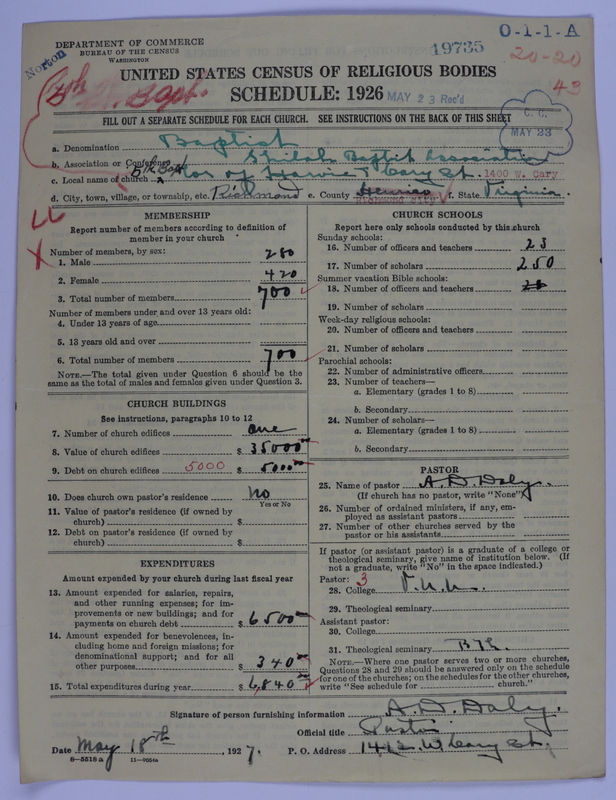 O-1-1-A
DEPARTMENT OF COMMERCE
BUREAU OF THE CENSUS
WASHINGTON
Norton
19735
20-20
43
UNITED STATES CENSUS OF RELIGIOUS BODIES
SCHEDULE: 1926
MAY 23 Rec'd
C. C.
MAY 23
FILL OUT A SEPARATE SCHEDULE FOR EACH CHURCH. SEE INSTRUCTIONS ON THE BACK OF THIS SHEET
a. Denomination Baptist
b. Association or Conference Shiloh Baptist Association
c. Local name of church 5th St Bapt Cor of Harvie & Cary St. 1400 W. Cary
d. City, town, village, or township, etc. Richmond e. County Henrico f. State Virginia.
MEMBERSHIP
Report number of members according to definition of member in your church
Number of members, by sex:
1. Male 280
2. Female 420
3. Total number of members 700
Number of members under and over 13 years old:
4. Under 13 years of age
5. 13 years old and over
6. Total number of members 700
NOTE.—The total given under Question 6 should be the same as the total of males and females given under Question 3.
CHURCH BUILDINGS
See instructions, paragraphs 10 to 12
7. Number of church edifices one
8. Value of church edifices $ 35000 00
9. Debt on church edifices 5000 $ 5000 00
10. Does church own pastor's residence No
Yes or No
11. Value of pastor's residence (if owned by church) $
12. Debt on pastor's residence (if owned by church) $
EXPENDITURES
Amount expended by your church during last fiscal year
13. Amount expended for salaries, repairs, and other running expenses; for improvements or new buildings; and for payments on church debt $ 6500 00
14. Amount expended for benevolences, including home and foreign missions; for denominational support; and for all other purposes 340 00
15. Total expenditures during year $ 6,840 00
CHURCH SCHOOLS
Report here only schools conducted by this church
Sunday schools:
16. Number of officers and teachers 23
17. Number of scholars 250
Summer vacation Bible schools:
18. Number of officers and teachers
19. Number of scholars
Week-day religious schools:
20. Number of officers and teachers
21. Number of scholars
Parochial schools:
22. Number of administrative officers
23. Number of teachers—
a. Elementary (grades 1 to 8)
b. Secondary
24. Number of scholars—
a. Elementary (grades 1 to 8)
b. Secondary
PASTOR
25. Name of pastor A. D. Daly.
(If church has no pastor, write "None")
26. Number of ordained ministers, if any, employed as assistant pastors
27. Number of other churches served by the pastor or his assistants
If pastor (or assistant pastor) is a graduate of a college or theological seminary, give name of institution below. (If not a graduate, write "No" in the space indicated.)
Pastor: 3
28. College V.U.U.
29. Theological seminary
Assistant pastor:
30. College
31. Theological seminary
NOTE.—Where one pastor serves two or more churches, Questions 28 and 29 should be answered only on the schedule for one of the churches; on the schedules for the other churches, write "See schedule for church."
Signature of person furnishing information A. D. Daly.
Official title Pastor
Date May 18th, 1927. P. O. Address 1412 W Cary St,
8-5518 a 11-9054a